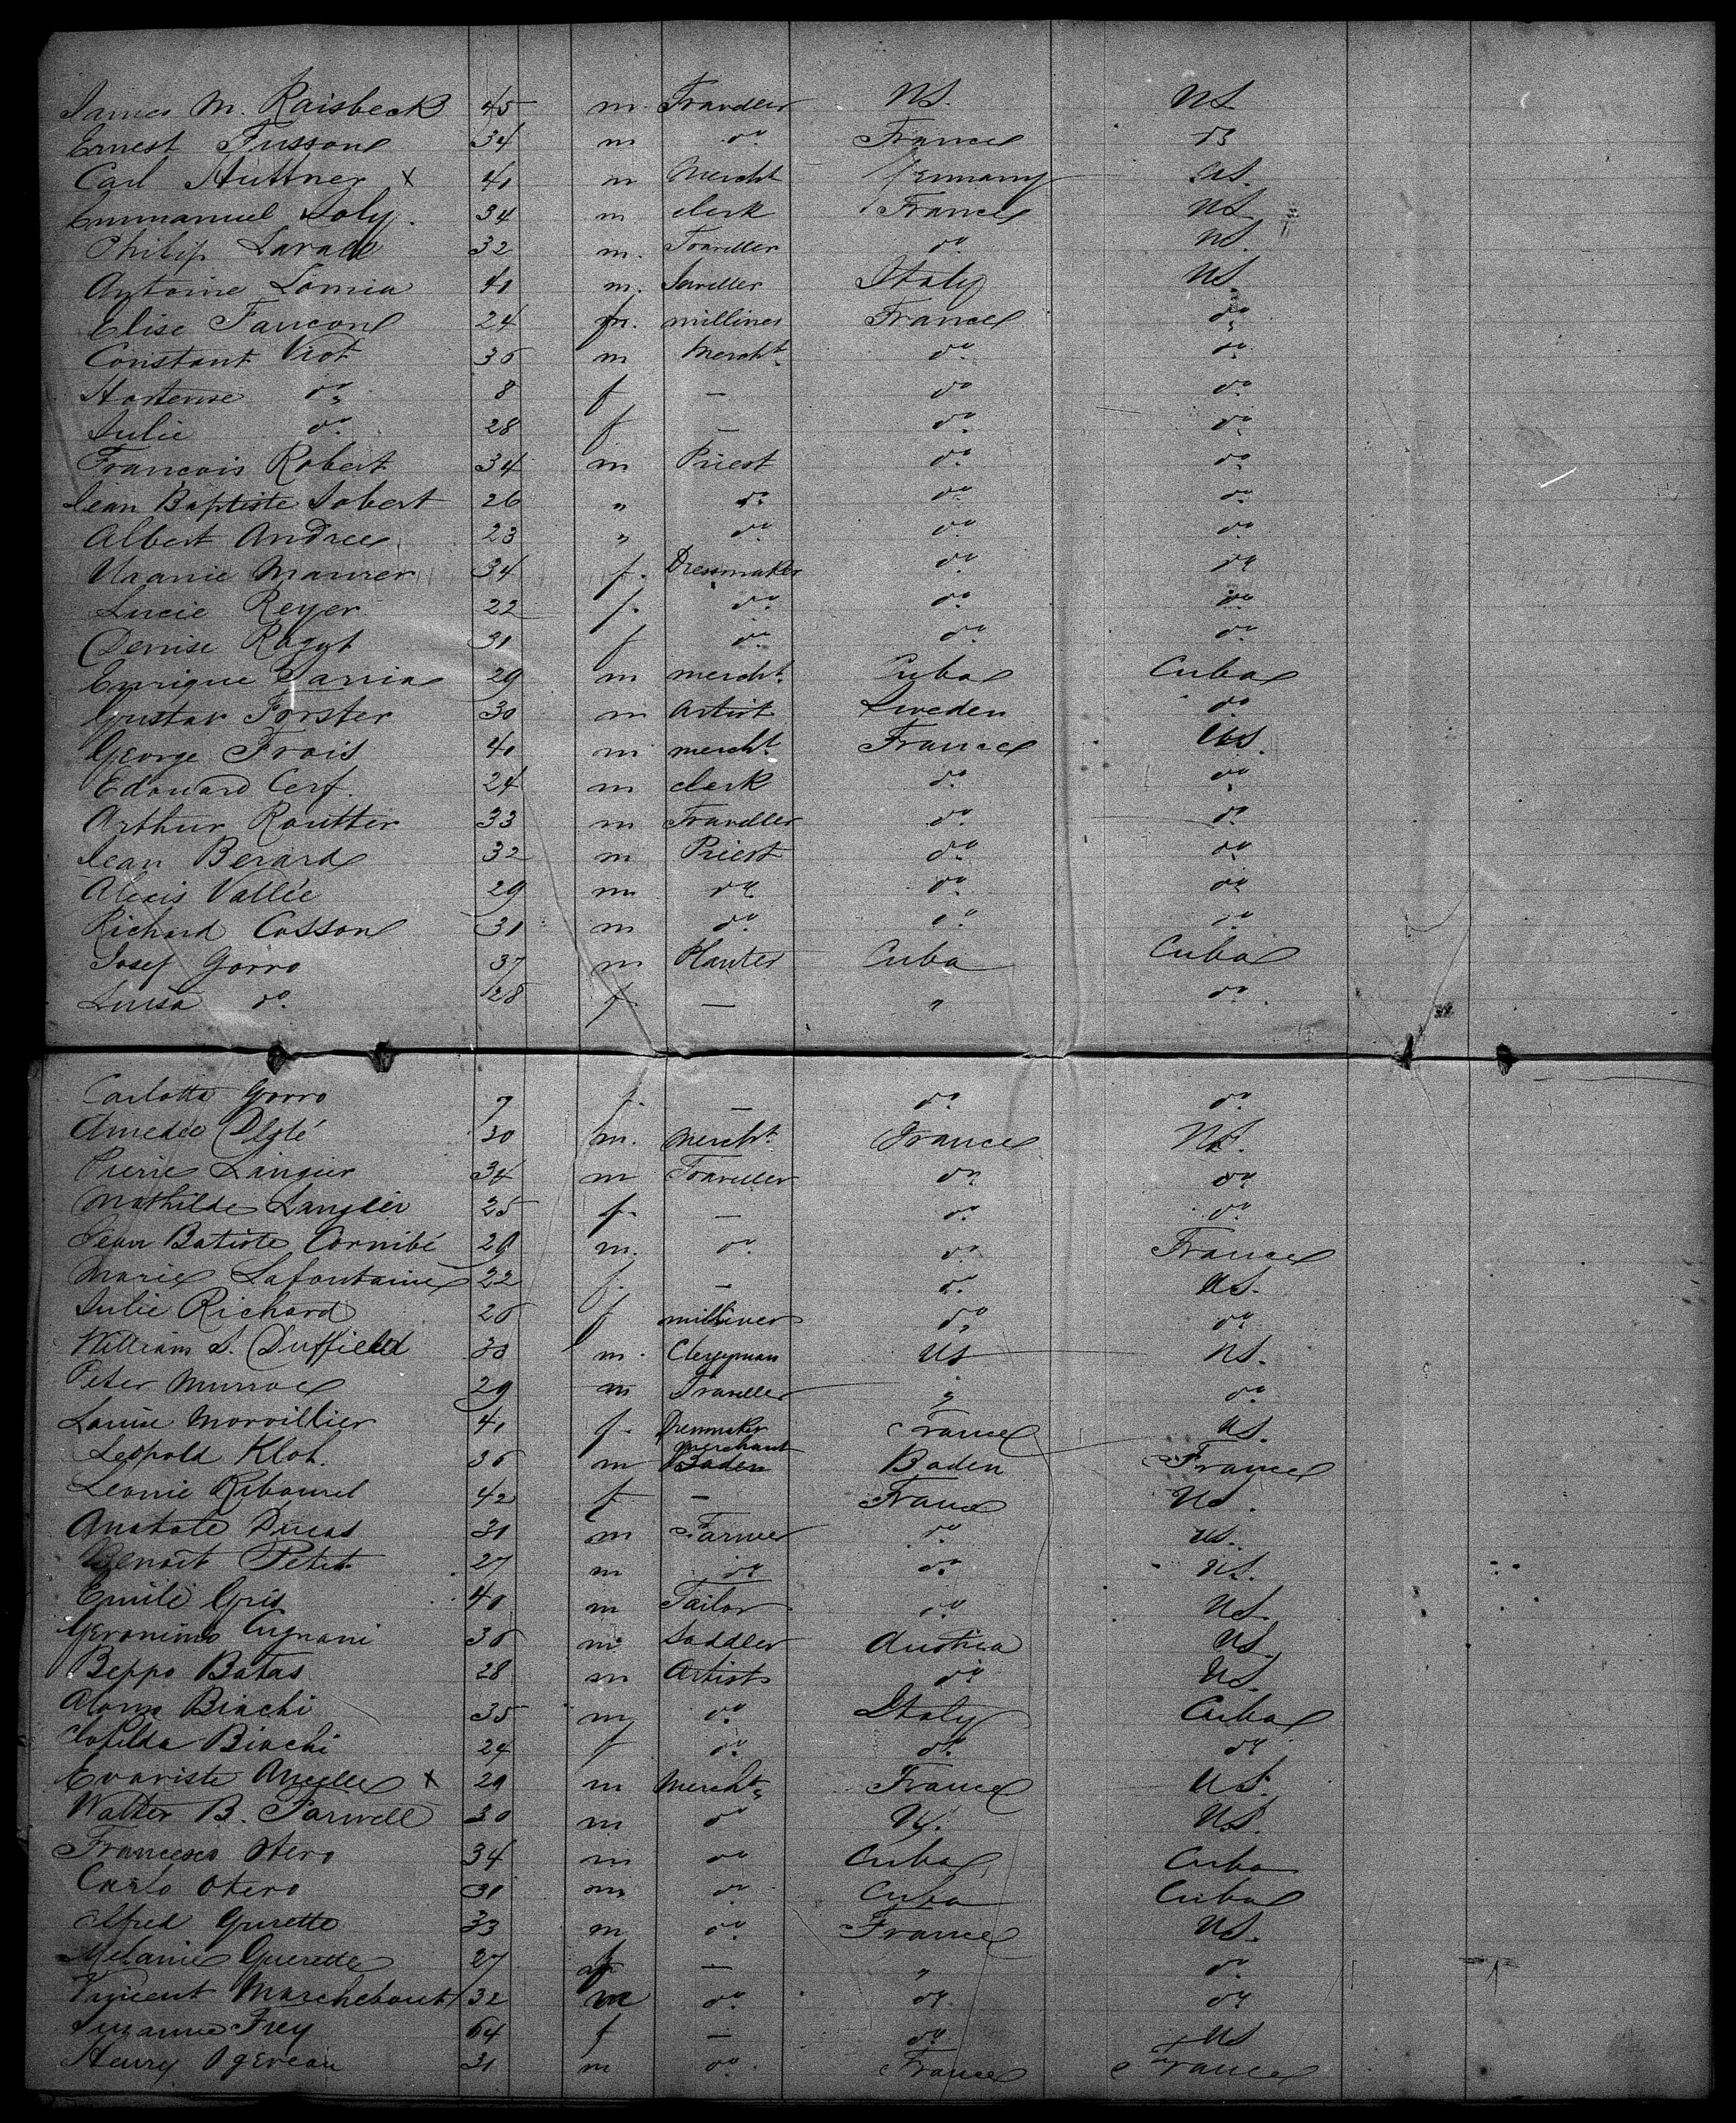 James M. Raisbeck 45 m. Traveller US. US
Ernest Fusson 34 m do France do
Carl Hüttner x 41 m Mercht Germany US.
Emmanuel Soly. 34 m clerk France US
Philip 32 m. Traveller do US.
Antoine Lomia 41 m. Traveller Italy US
Elise Faucon 24 f. milliner France do
Constant Viot 36 m Mercht. do do
Hortense do 8 f — do do
Julie do 28 f — do do
Francois Robert 34 m Priest do do
Jean Baptiste Jobert 26 " do do do
Albert Andree 23 " do do do
Uranie Maurer 34 f. Dressmaker do do
Lucie Reyer 22 f. do do do
Denise Ragyt 31 f do do do
Enrique Parria 29 m mercht. Cuba Cuba
Gustav Forster 30 m Artist Sweden do
George Frois 41 m mercht. France US.
Edouard Cerf. 24 m clerk do do
Arthur Routter 33 m Traveller do do
Jean Berard 32 m Priest do do
Alexis Vallée 29 m do do do
Richard Cosson 31 m do do do
Josef Gorro 37 m Planter Cuba Cuba
Luisa do. 28 f. — " do.
Carlotta Gorro 7 f. — do. do.
Amedée 30 m. Mercht. France US.
Pierre Langier 34 m Traveller do do
Mathilde Langier 25 f. — do. do.
Jean Batiste Cornibé 29 m. do. do. France
Marie Lafontaine 22 f. — do. US.
Julie Richard 26 f milliner do do
William S. Duffield 30 m. Clergyman US US.
Peter Munroe 29 m Traveller " do
Louise Morvillier 41 f. Dressmaker France US.
Leopold Kloh. 36 m merchant Baden Baden France
Leonie Ribourel 42 f — France US.
Anatole Ducas 31 m Farmer do US.
Benoit Petit 27 m do do. US.
Emile Gris 40 m Tailor do US.
Geronimo Cugnani 36 m Saddler Austria US.
Beppo Batas 28 m Artist do US.
Biachi 35 m do. Italy Cuba
Clotilda Biachi 24 f do. do. do
Evariste x 29 m Mercht. France US.
Walter B. Farwell 30 m do US. US.
Francesco Otero 34 m do Cuba Cuba
Carlo Otero 31 m do Cuba Cuba
Alfred Gurette 33 m do. France US.
Melanie Guerette 27 f — " do.
Vincent Marchebout 32 m do. do do
Suzanne Frey 64 f — do US
Henry Ogereau 31 m do. France France